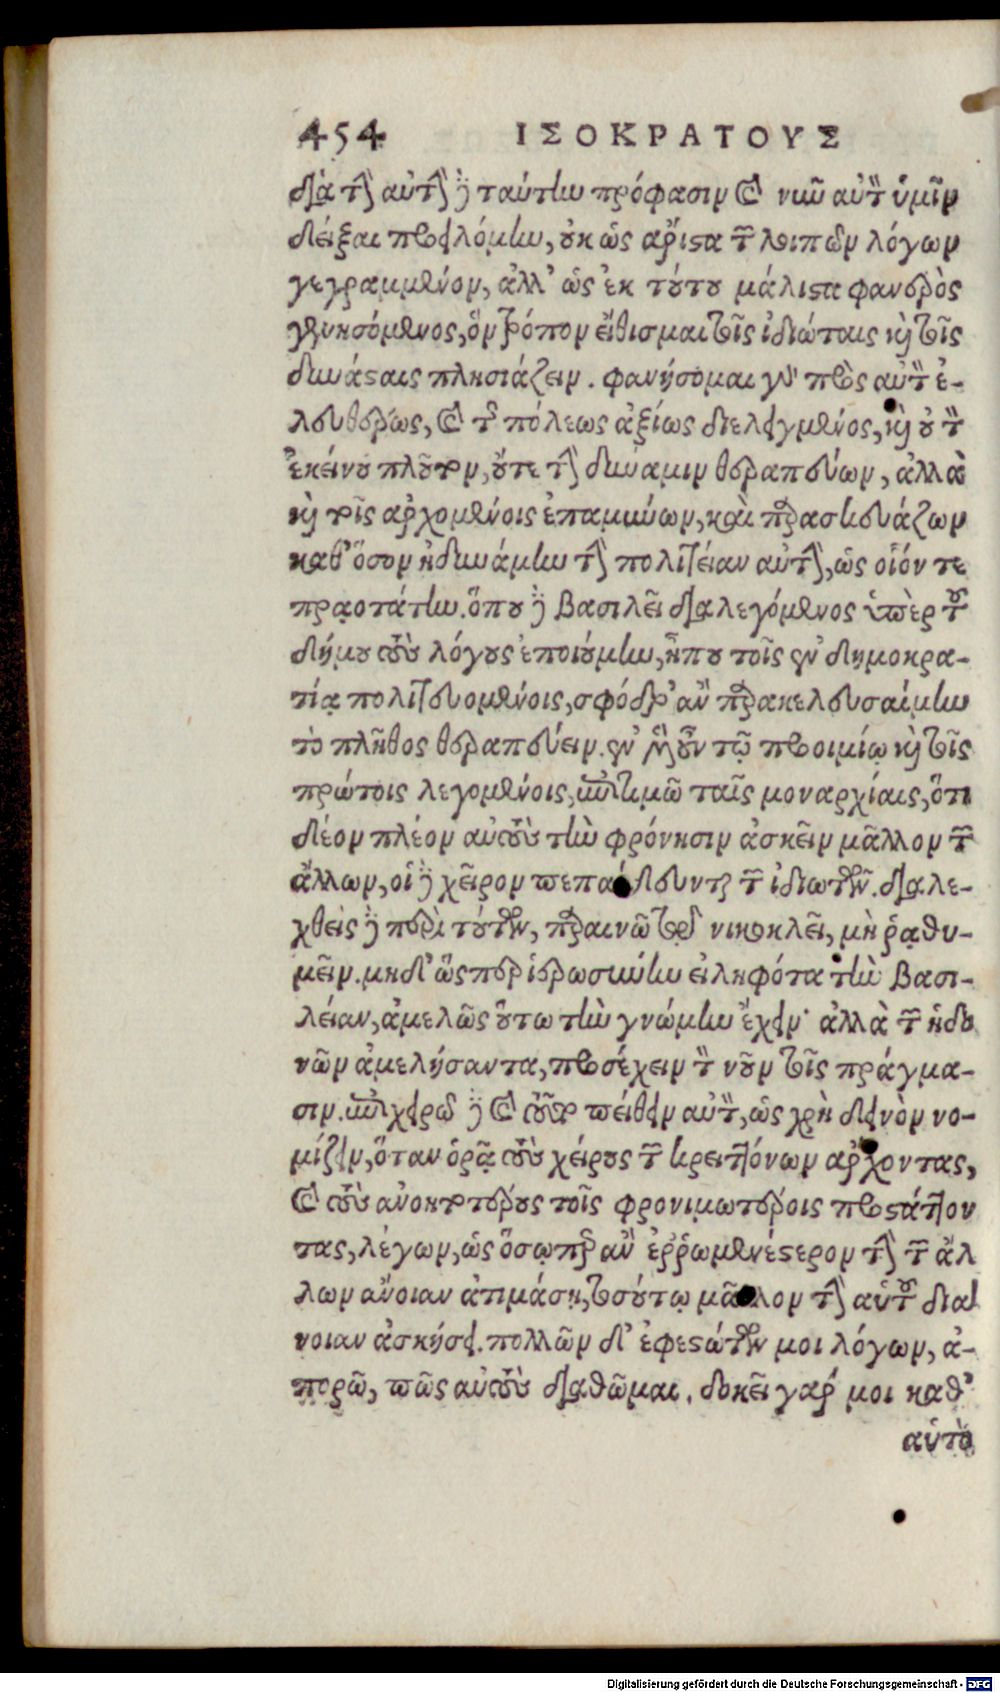 454 ΙΣΟΚΡΑΤΟΥΣ
διὰ τὴν αὐτὴν δὲ ταύτην πρόφασιν καὶ νῦν αὐτὸν ὑμῖν
δεῖξαι προειλόμην, οὐκ ὡς ἄριστα τῶν λοιπῶν λόγων
γεγραμμένον, ἀλλ' ὡς ἐκ τούτου μάλιστα φανερὸς
γενησόμενος, ὃν τρόπον εἴθισμαι τοῖς ἰδιώταις καὶ τοῖς
δυνάσταις πλησιάζειν. φανήσομαι γὰρ πρὸς αὐτὸν ἐ-
λευθέρως, καὶ τῆς πόλεως ἀξίως διειλεγμένος, καὶ οὐ τὸν
ἐκείνου πλοῦτον, οὔτε τὴν δύναμιν θεραπεύων, ἀλλὰ
καὶ τοῖς ἀρχομένοις ἐπαμύνων, καὶ παρασκευάζων
καθ' ὅσον ἠδυνάμην τὴν πολιτείαν αὐτὴν, ὡς οἷόν τε
πραοτάτην. ὅπου δὲ βασιλεῖ διαλεγόμενος ὑπὲρ τοῦ
δήμου τοὺς λόγους ἐποιούμην, ἦπου τοῖς ἐν δημοκρα-
τίᾳ πολιτευομένοις, σφόδρ' ἂν παρακελευσαίμην
τὸ πλῆθος θεραπεύειν. ἐν μὲν οὖν τῷ προοιμίῳ καὶ τοῖς
πρώτοις λεγομένοις, ἐπιτιμῶ ταῖς μοναρχίαις, ὅτι
δέον πλέον αὐτοὺς τὴν φρόνησιν ἀσκεῖν μᾶλλον τῶν
ἄλλων, οἱ δὲ χεῖρον πεπαίδευνται τῶν ἰδιωτῶν. διαλε-
χθεὶς δὲ περὶ τούτων, παραινῶ τῷ νικοκλεῖ, μὴ ῥᾳθυ-
μεῖν. μηδ' ὥσπερ ἱερωσύνην εἰληφότα τὴν βασι-
λείαν, ἀμελῶς οὕτω τὴν γνώμην ἔχειν· ἀλλὰ τῶν ἡδο
νῶν ἀμελήσαντα, προσέχειν τὸν νοῦν τοῖς πράγμα-
σιν. ἐπιχειρῶ δὲ καὶ τοῦτο πείθειν αὐτὸν, ὡς χρὴ δεινὸν νο-
μίζειν, ὅταν ὁρᾷ τοὺς χείρους τῶν κρειττόνων ἄρχοντας,
καὶ τοὺς ἀνοητοτέρους τοῖς φρονιμωτέροις προστάττον
τας, λέγων, ὡς ὅσῳπερ ἂν ἐῤῥωμενέστερον τὴν τῶν ἄλ
λων ἄνοιαν ἀτιμάσῃ, τοσούτῳ μᾶλλον τὴν αὑτοῦ διά
νοιαν ἀσκήσει. πολλῶν δ' ἐφεστώτων μοι λόγων, ἀ-
πορῶ, πῶς αὐτοὺς διαθῶμαι. δοκεῖ γάρ μοι καθ'
αὑτὸ
Digitalisierung gefördert durch die Deutsche Forschungsgemeinschaft - DFG